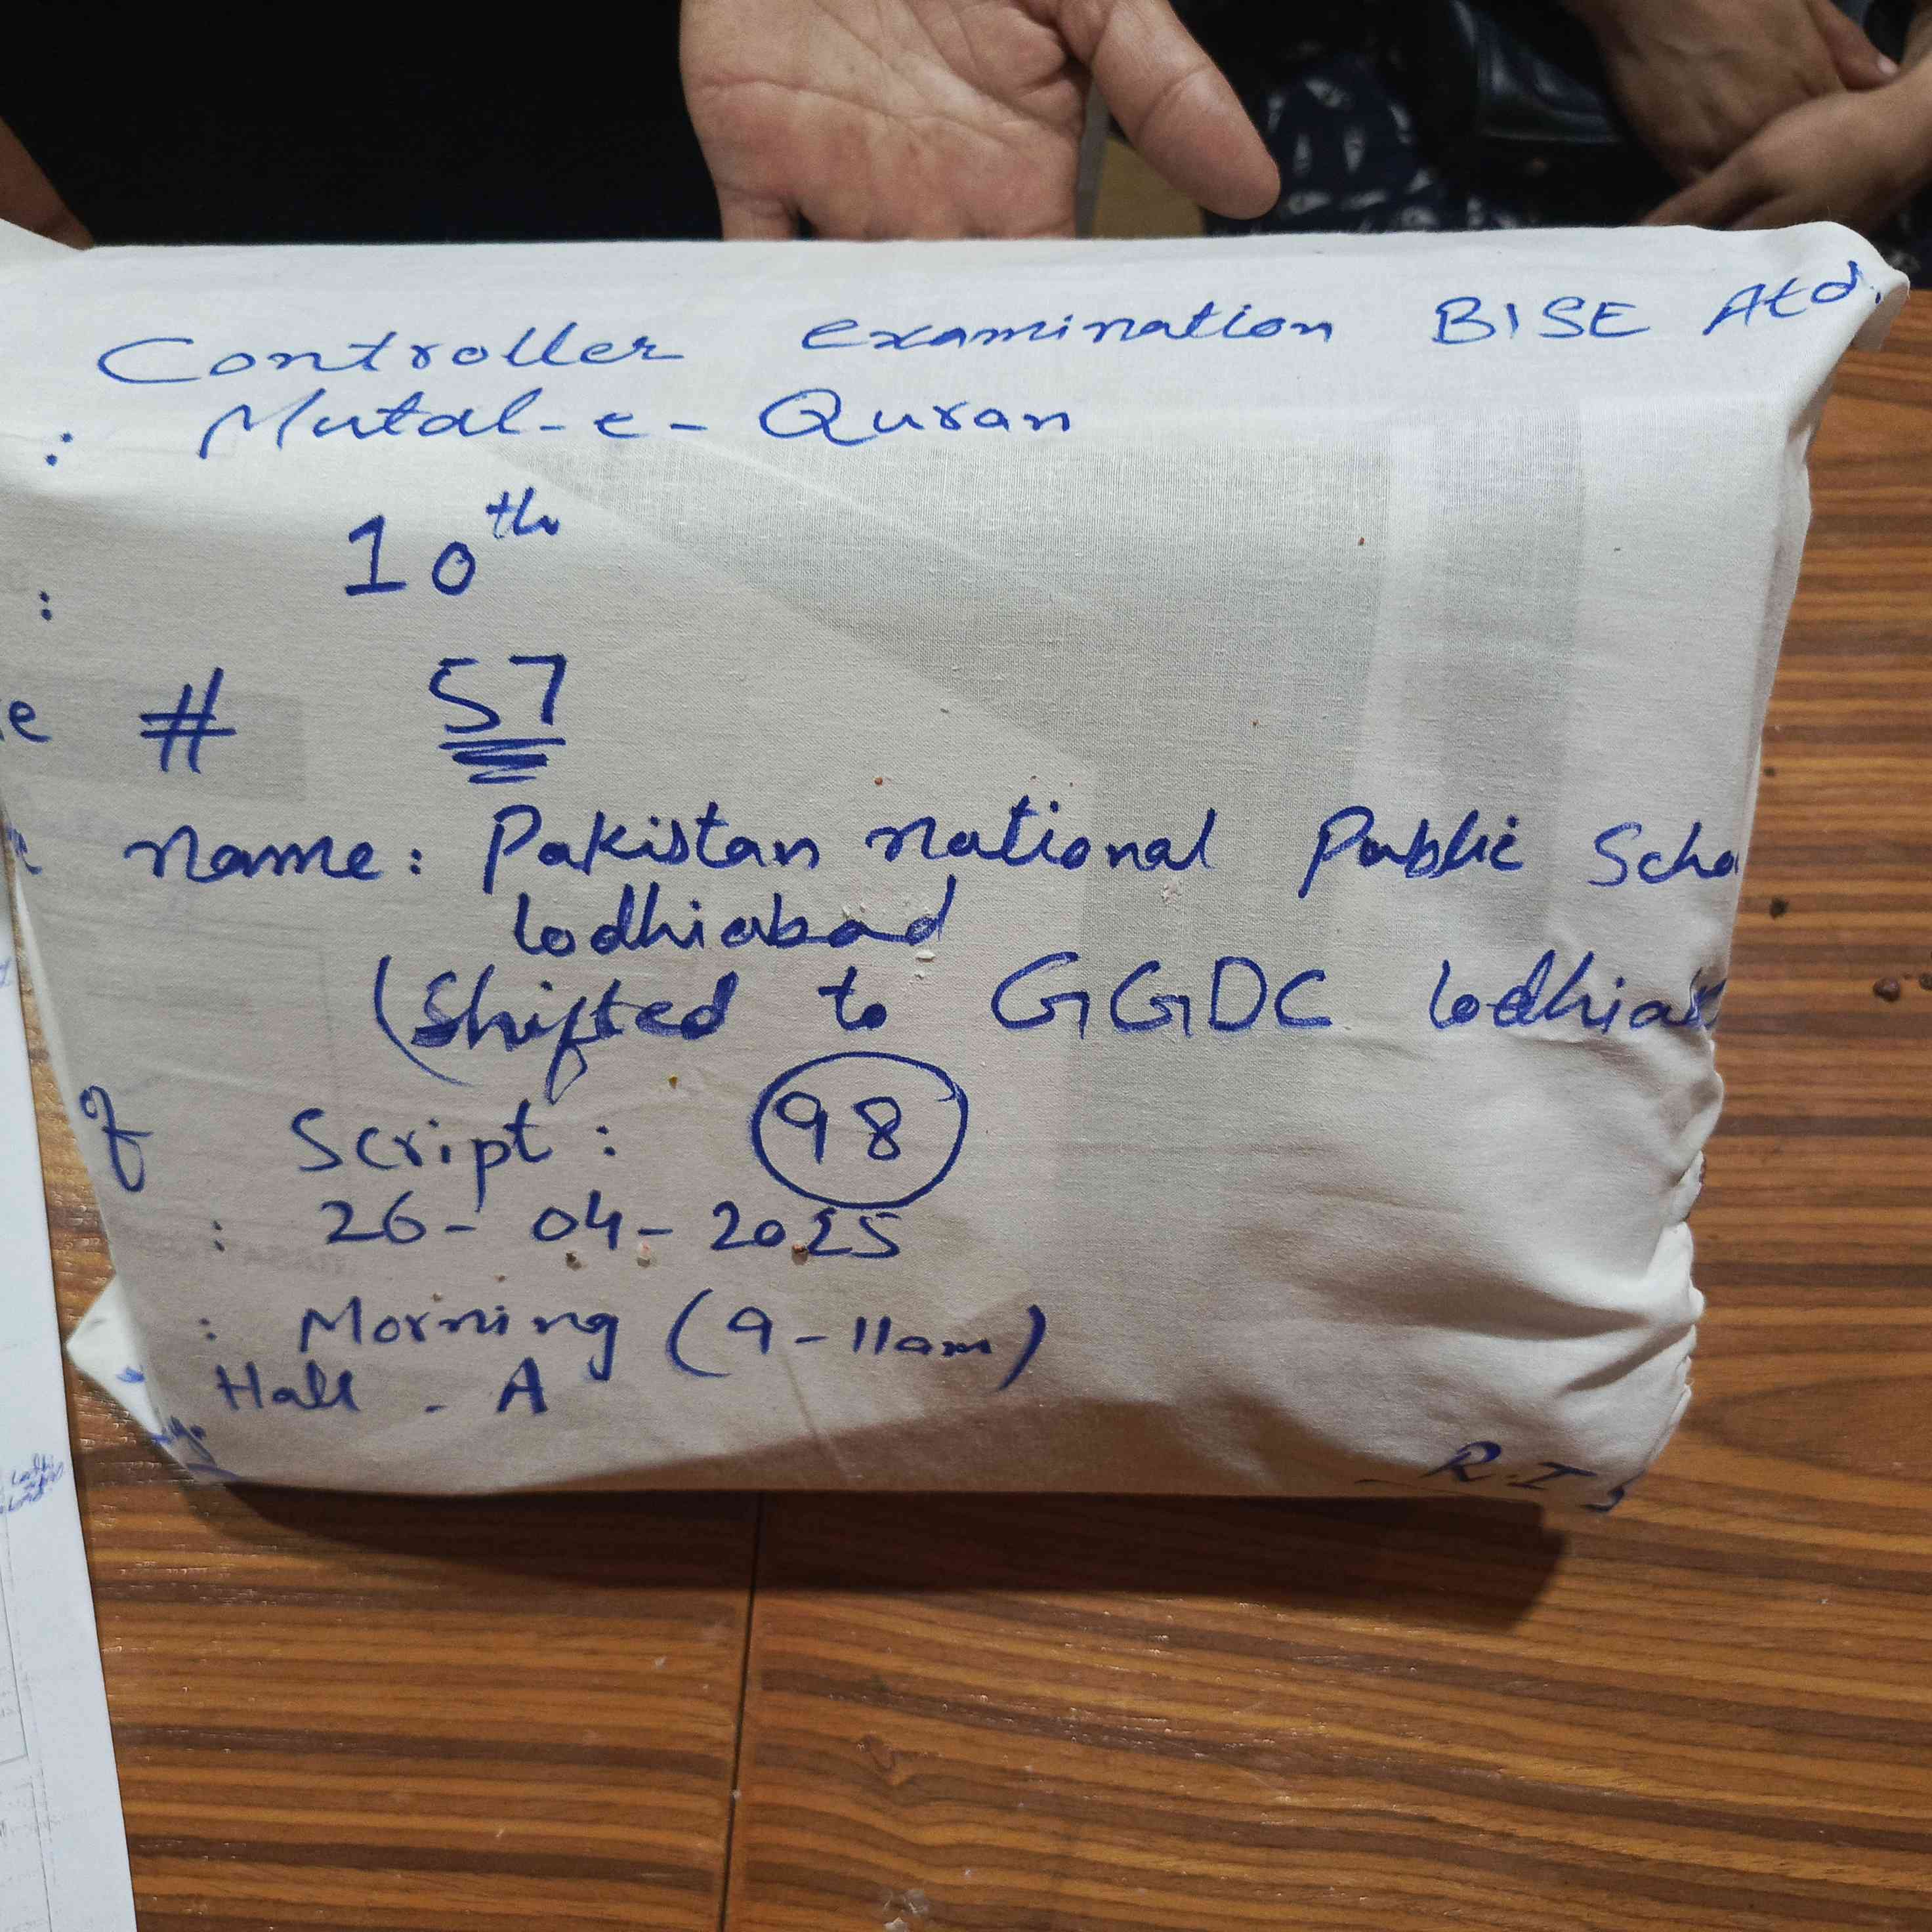 Controller examination BISE Atd.
: Mutal-e-Quran
: 10th
e # 57
name: Pakistan national Public Scho
lodhiabad
(Shifted to GGDC lodhiab
of Script: 98
: 26-04-2025
: Morning (9-11am)
Hall - A
R.I.S